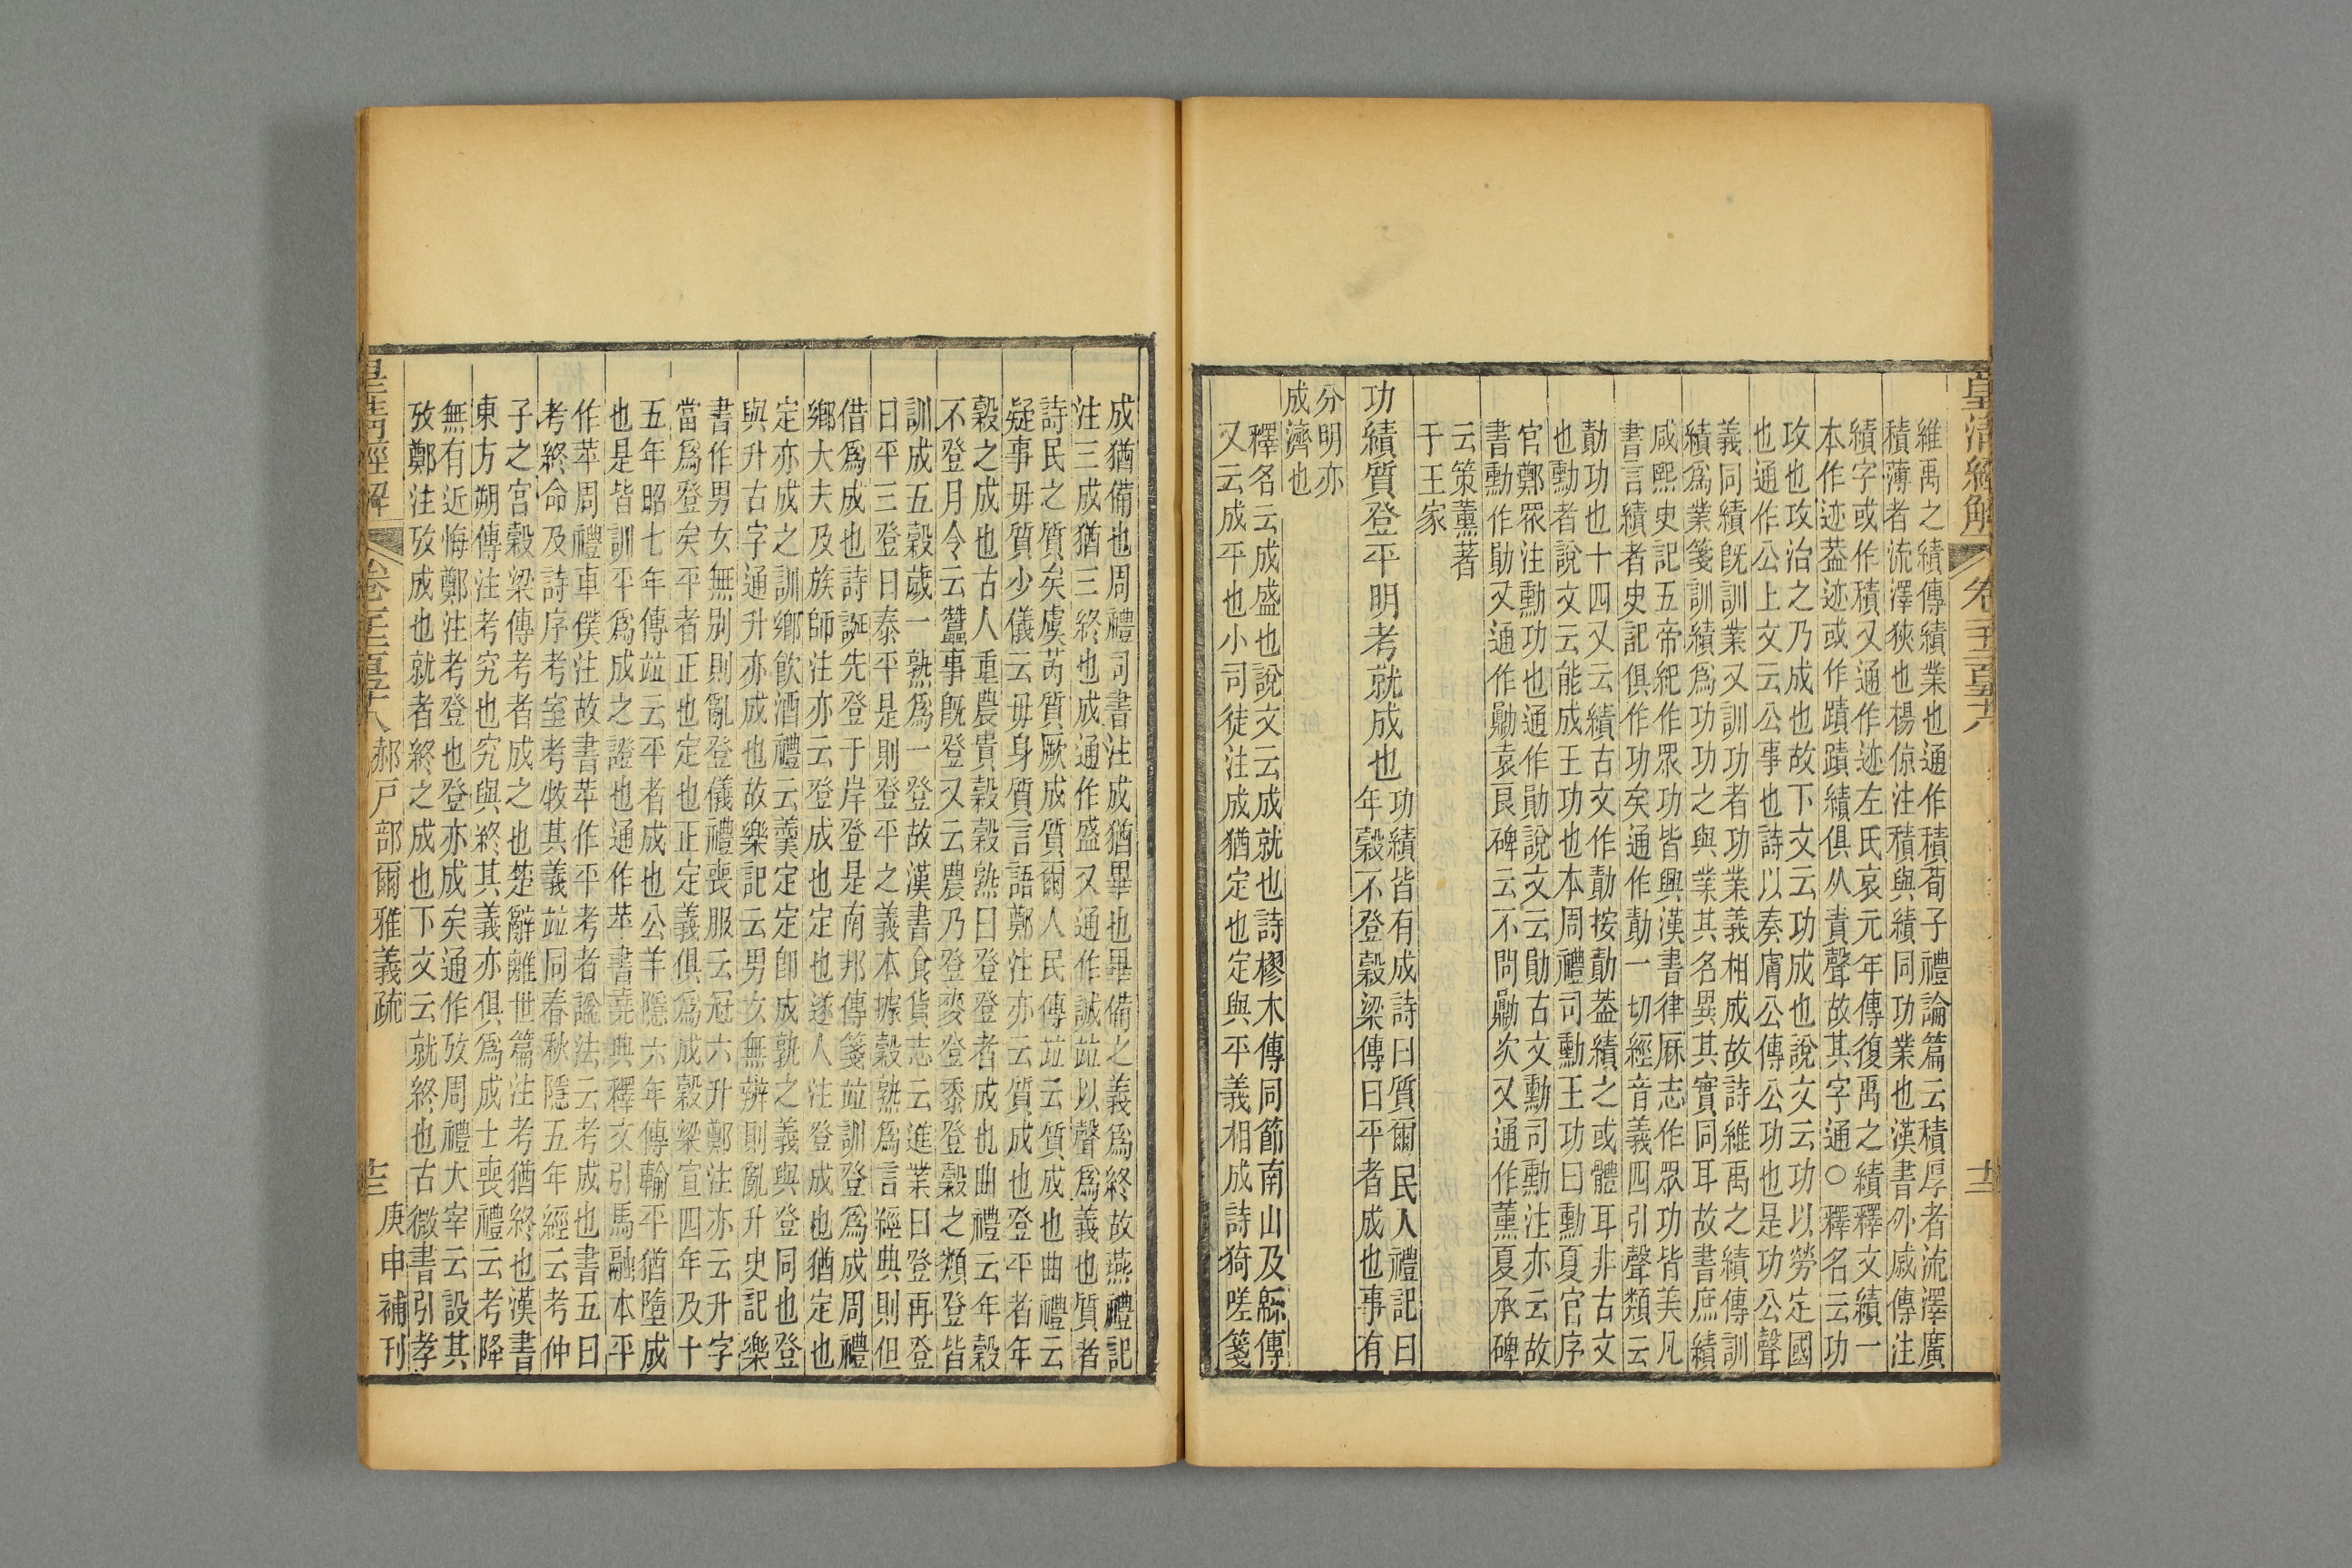 皇清經解
卷
維禹之績傳績業也通作積荀子禮論篇云積厚者流澤廣
積薄者流澤狹也楊倞注積與績同功業也漢書外戚傳注
績字或作積又通作迹左氏哀元年傳復禹之績釋文績一
本作迹葢迹或作蹟蹟績俱从責聲故其字通○釋名云功
攻也攻治之乃成也故下文云功成也說文云功以勞定國
也通作公上文云公事也詩以奏膚公傳公功也是功公聲
義同績旣訓業又訓功者功業義相成故詩維禹之績傳訓
績爲業箋訓績爲功功之與業其名異其實同耳故書庶績
咸熙史記五帝紀作眾功皆興漢書律厤志作眾功皆美凡
書言績者史記俱作功矣通作勣一切經音義四引聲類云
勣功也十四又云績古文作勣按勣葢績之或體耳非古文
也勳者說文云能成王功也本周禮司勳王功曰勳夏官序
官鄭眾注勳功也通作勛說文云勛古文勳司勳注亦云故
書勳作勛又通作勵袁良碑云不問勵次又通作薰夏承碑
云策薰著
于王家
功績質登平明考就成也
功績皆有成詩曰質爾民人禮記曰
年穀不登穀梁傳曰平者成也事有
分明亦
成濟也
釋名云成盛也說文云成就也詩樛木傳同節南山及緜傳
又云成平也小司徒注成猶定也定與平義相成詩猗嗟箋
成猶備也周禮司書注成猶畢也畢備之義爲終故燕禮記
注三成猶三終也成通作盛又通作誠竝以聲爲義也質者
詩民之質矣虞芮質厥成質爾人民傳竝云質成也曲禮云
疑事毋質少儀云毋身質言語鄭注亦云質成也登平者年
穀之成也古人重農貴穀穀熟曰登登者成也曲禮云年穀
不登月令云蠶事旣登又云農乃登麥登黍登穀之類登皆
訓成五穀歲一熟爲一登故漢書食貨志云進業曰登再登
曰平三登曰泰平是則登平之義本據穀熟爲言經典則但
借爲成也詩誕先登于岸登是南邦傳箋竝訓登爲成周禮
鄉大夫及族師注亦云登成也定也遂人注登成也猶定也
定亦成之訓鄉飲酒禮云羹定定卽成孰之義與登同也登
與升古字通升亦成也故樂記云男女無辨則亂升史記樂
書作男女無別則亂登儀禮喪服云冠六升鄭注亦云升字
當爲登矣平者正也定也正定義俱爲成穀梁宣四年及十
五年昭七年傳竝云平者成也公羊隱六年傳輸平猶墮成
也是皆訓平爲成之證也通作苹書堯典釋文引馬融本平
作苹周禮車僕注故書苹作平考者諡法云考成也書五曰
考終命及詩序考室考牧其義竝同春秋隱五年經云考仲
子之宮穀梁傳考者成之也楚辭離世篇注考猶終也漢書
東方朔傳注考究也究與終其義亦俱爲成士喪禮云考降
無有近悔鄭注考登也登亦成矣通作攷周禮大宰云設其
攷鄭注攷成也就者終之成也下文云就終也古微書引孝
皇清經解
郝戶部爾雅義疏
庚申補刊